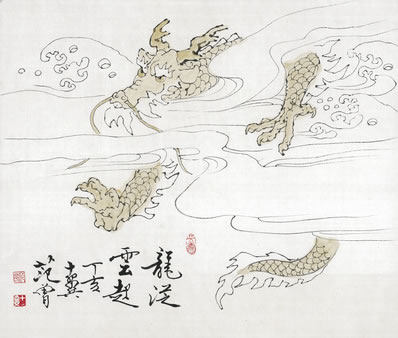 龍從
雲起
丁亥
十翼
范曾